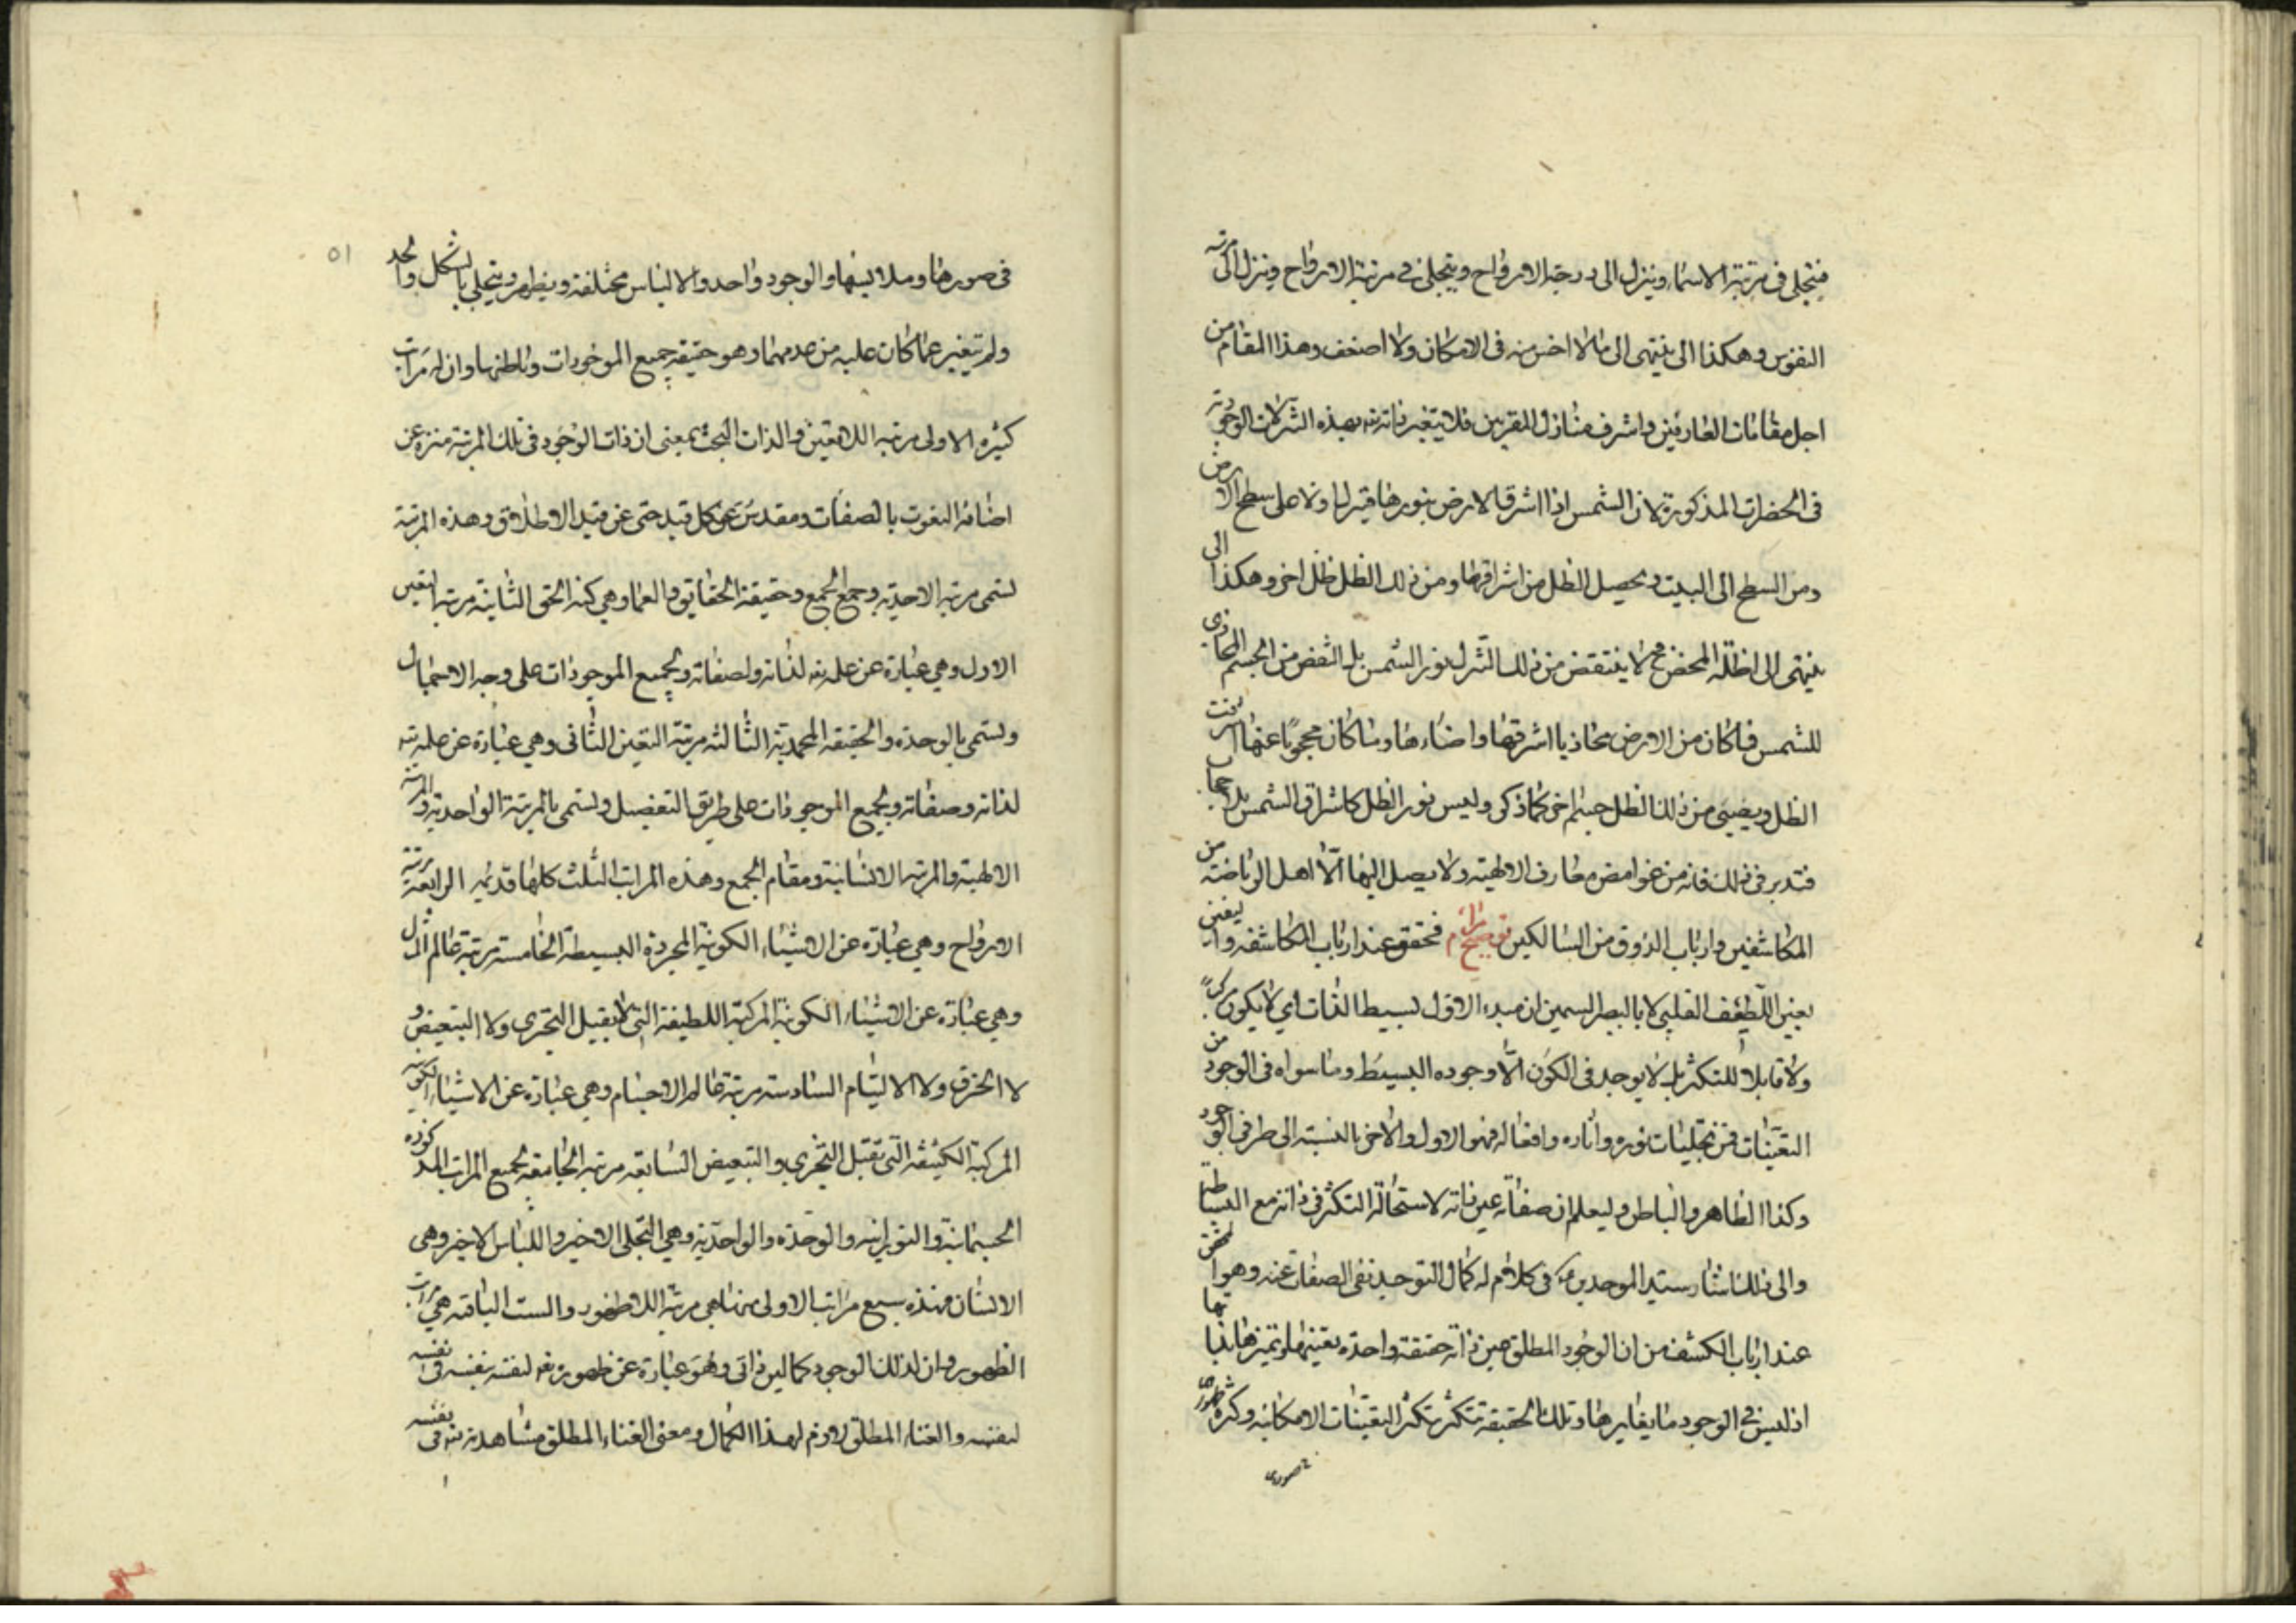 فيتجلى في مرتبة الاسماء وينزل الى درجة الارواح ويتجلى في مرتبة الارواح وينزل الى مرتبة
النفوس وهكذا الى ينتهى الى مالا اخس منه فى الامكان ولا اضعف وهذا المقام من
اجل مقامات العارفين واشرف منازل المقربين فلا يتغير ذاته بهذه التنزلات الوجودية
فى الحضرات المذكورة لان الشمس اذا اشرقت الارض بنورها فينزل اولا على سطح الارض
ومن السطح الى البيت ويحصل الظل من اشراقها ومن ذلك الظل ظل اخر وهكذا الى
ينتهى الى اظلة المحض لا ينتقض من ذلك التنزل نور الشمس بل النقص من الجسم المحاذى
للشمس فما كان من الارض محاذيا اشرقتها واضاءها وما كان محجوبا عنها
الظل ويضيئ من ذلك الظل جسم اخر كما ذكر وليس نور الظل كاشراق الشمس بلا حجاب
فتدبر فى ذلك فانه من غوامض معارف الالهية ولا يصل اليها الا اهل الرياضة من
المكاشفين وارباب الذوق من السالكين توضيح مرام فتحقق عند ارباب المكاشفه واليقين
بعين اللطف القلبى لا بالبصر ان مبدء الاول بسيط الذات اى لا يكون مركبا
ولا قابلا للتكثر بل لا يوجد فى الكون الا وجوده البسيط وما سواه فى الوجود من
التعينات فمن تجليات نوره واثاره وافعاله فهو الاول والاخر بالنسبة الى طرفى الوجود
وكذا الظاهر والباطن وليعلم ان صفاته عين ذاته لاستحالة التكثر فى ذاته مع البساطة
والى ذلك اشار سيد الموحدين فى كلام له كمال التوحيد نفى الصفات عنه وهو الحق
عند ارباب الكشف من ان الوجود المطلق عين ذاته حقيقة واحدة بعينها وتميزها بذاتها
اذ ليس فى الوجود ما يغايرها وتلك الحقيقة تتكثر بتكثر التعينات الامكانيه وكثرة ظهورى
صورى
٥١
فى صورها وملابسها والوجود واحد والالباس مختلفة ويظهر ويتجلى بالشكل والحد
ولم يتغير عما كان عليه من عدمهما وهو حقيقة جميع الموجودات وباطنها وان له مراتب
كثيره الاولى مرتبه اللاتعين والذات البحت بمعنى ان ذات الوجود فى تلك المرتبة منزه عن
اضافة النعوت بالصفات ومقدس عن كل قيد حتى عن قيد الاطلاق وهذه المرتبة
تسمى مرتبه الاحدية وجمع الجمع وحقيقة الحقايق والعما وهى كنه الحق الثانية مرتبه التعين
الاول وهى عبارة عن علمه لذاته ولصفاته ولجميع الموجودات على وجه الاجمال
وتسمى بالوحدة والحقيقة المحمدية الثالثه مرتبة التعين الثانى وهى عبارة عن علمه
لذاته وصفاته ولجميع الموجودات على طريق التفصيل وتسمى بالمرتبة الواحدية والمرتبة
الالهية والمرتبه الانسانية ومقام الجمع وهذه المراتب الثلث كلها قديمه الرابعة مرتبة
الارواح وهى عبارة عن الاشياء الكونية المجردة البسيطة الخامسة مرتبة عالم المثال
وهى عبارة عن الاشياء الكونية المركبة اللطيفة التى لا يقبل التجزى ولا التبعيض و
لا الخرق ولا الالتيام السادسه مرتبة عالم الاجسام وهى عبارة عن الاشياء الكونية
المركبة الكثيفه التى تقبل التجزى والتبعيض السابعة مرتبه الجامعة لجميع المراتب المذكوره
الجسمانية والنورانية والوحدة والواحدية وهى التجلى الاخير واللباس الاخير وهى
الانسان فهذه سبع مراتب الاولى منها هى مرتبة اللاظهور والست الباقية هى مراتب
الظهور وان لذلك الوجود كمالين ذاتى وهو عبارة عن ظهوره لنفسه بنفسه فى نفسه
لنفسه والغناء المطلق لازم لهذا الكمال ومعنى الغناء المطلق مشاهدته فى نفسه